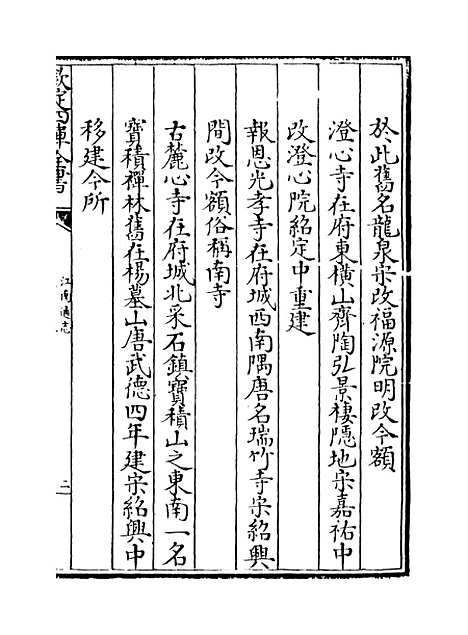 於此舊名龍泉宋改福源院明改今額
澄心寺在府東橫山齊陶弘景棲隱地宋嘉祐中
改澄心院紹定中重建
報恩光孝寺在府城西南隅唐名瑞竹寺宋紹興
間改今額俗稱南寺
古麓心寺在府城北采石鎮寶積山之東南一名
寶積禪林舊在楊墓山唐武德四年建宋紹興中
移建今所
欽定四庫全書
江南通志
二